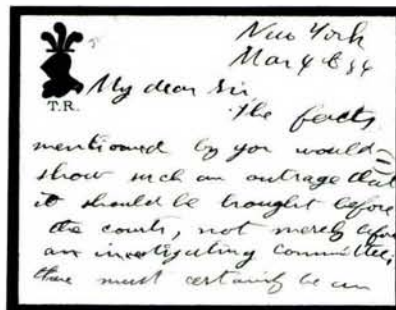 New York
Mar 4th 84
T.R.
My dear Sir
The facts
mentioned by you would
show such an outrage that
it should be brought before
the courts, not merely before
an investigating committee;
there must certainly be an